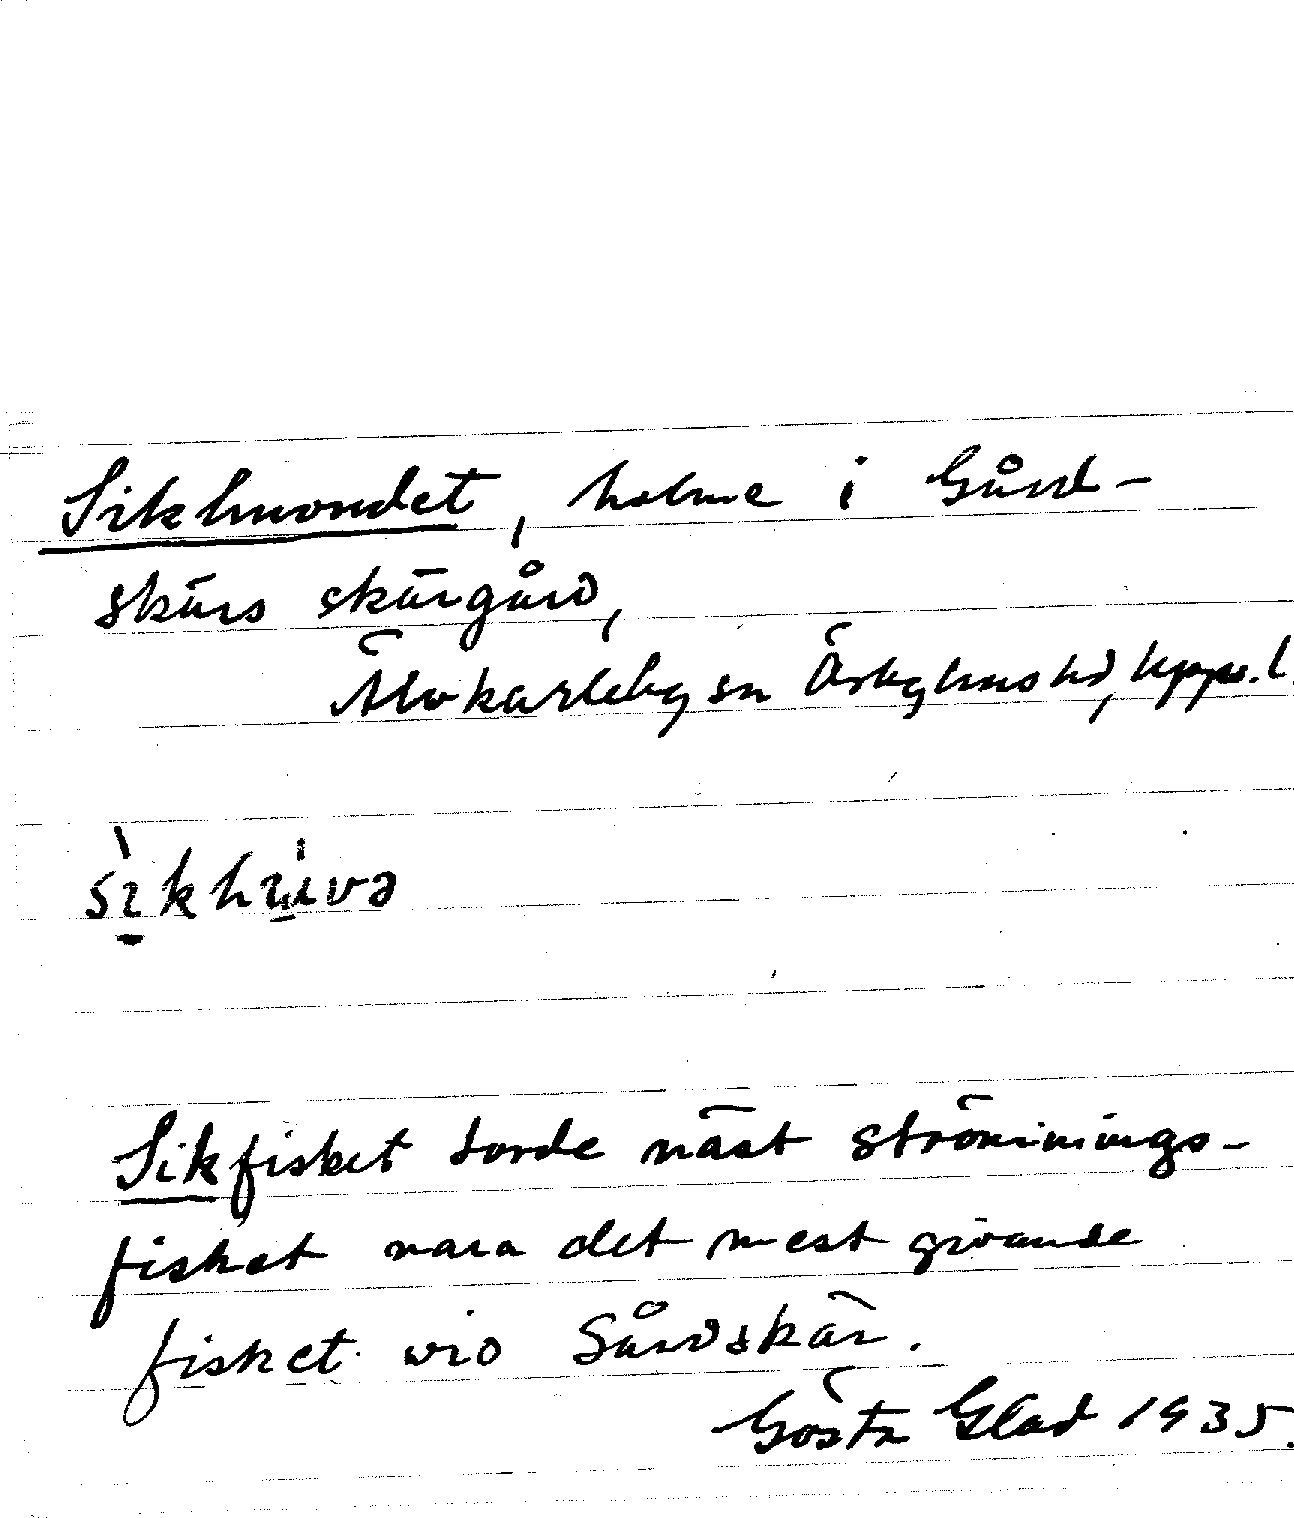 Sikhuvudet, holme i Gård-
skärs skärgård,
Älvkarleby sn Örbyhus hd, Uppl.
sìkhùvə
Sikfisket torde näst strömmings-
fisket vara det mest givande
fisket vid Gårdskär.
Gösta Glad 1935.